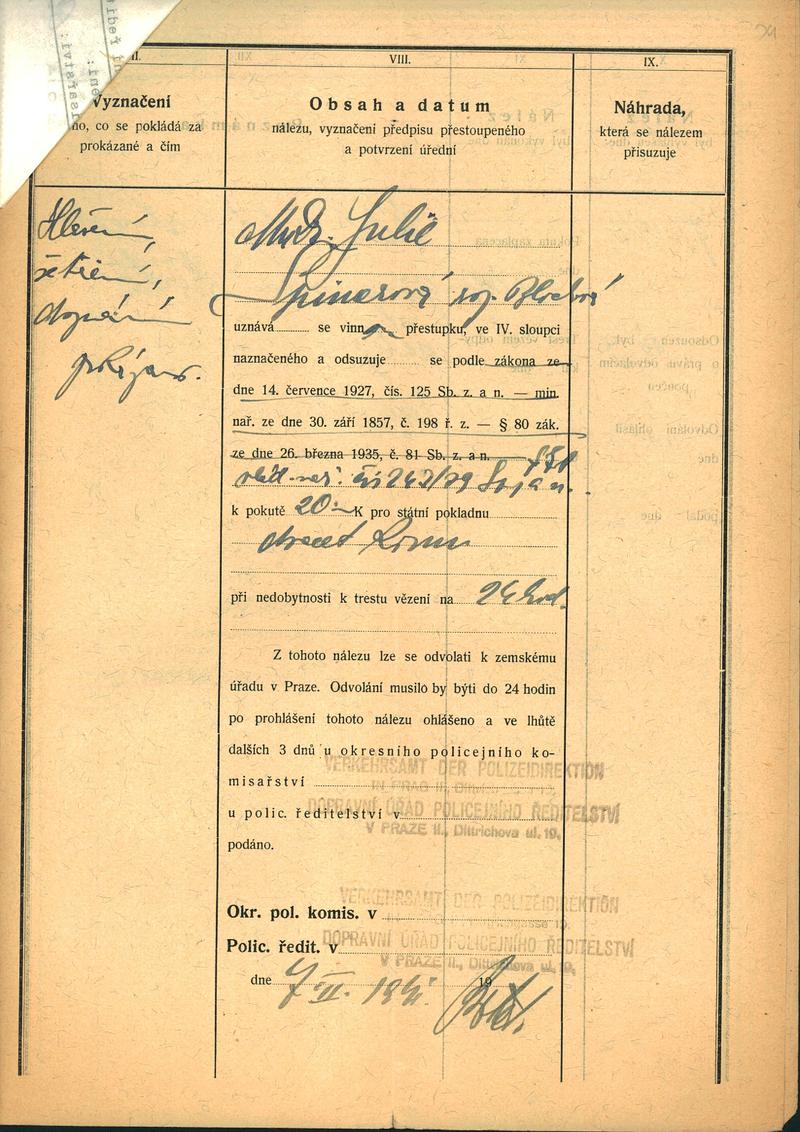 VIII.
IX.
Vyznačení
co se pokládá za
prokázané a čím
Obsah a datum
nálezu, vyznačení předpisu přestoupeného
a potvrzení úřední
Náhrada,
která se nálezem
přisuzuje
Hlášení,
šetření,
doznání
MUDr. Julie
Spinerová roz. Blochová
uznává se vinnou přestupku, ve IV. sloupci
naznačeného a odsuzuje se podle zákona ze
dne 14. července 1927, čís. 125 Sb. z. a n. — min.
nař. ze dne 30. září 1857, č. 198 ř. z. — § 80 zák.
ze dne 26. března 1935, č. 81 Sb. z. a n.
vlád. nař. čís 242/39 Sb. z a n.
k pokutě 20.- K pro státní pokladnu
dvacet Korun
při nedobytnosti k trestu vězení na 24 hod.
Z tohoto nálezu lze se odvolati k zemskému
úřadu v Praze. Odvolání musilo by býti do 24 hodin
po prohlášení tohoto nálezu ohlášeno a ve lhůtě
dalších 3 dnů u okresního policejního ko-
misařství
u polic. ředitelství v
podáno.
VERKEHRSAMT DER POLIZEIDIREKTION
IN PRAG II.,
DOPRAVNÍ ÚŘAD POLICEJNÍHO ŘEDITELSTVÍ
V PRAZE II., Dittrichova ul. 19.
Okr. pol. komis. v
VERKEHRSAMT DER POLIZEIDIREKTION
Polic. ředit. v
DOPRAVNÍ ÚŘAD POLICEJNÍHO ŘEDITELSTVÍ
V PRAZE II., Dittrichova ul. 19.
dne 7. II. 1941 19